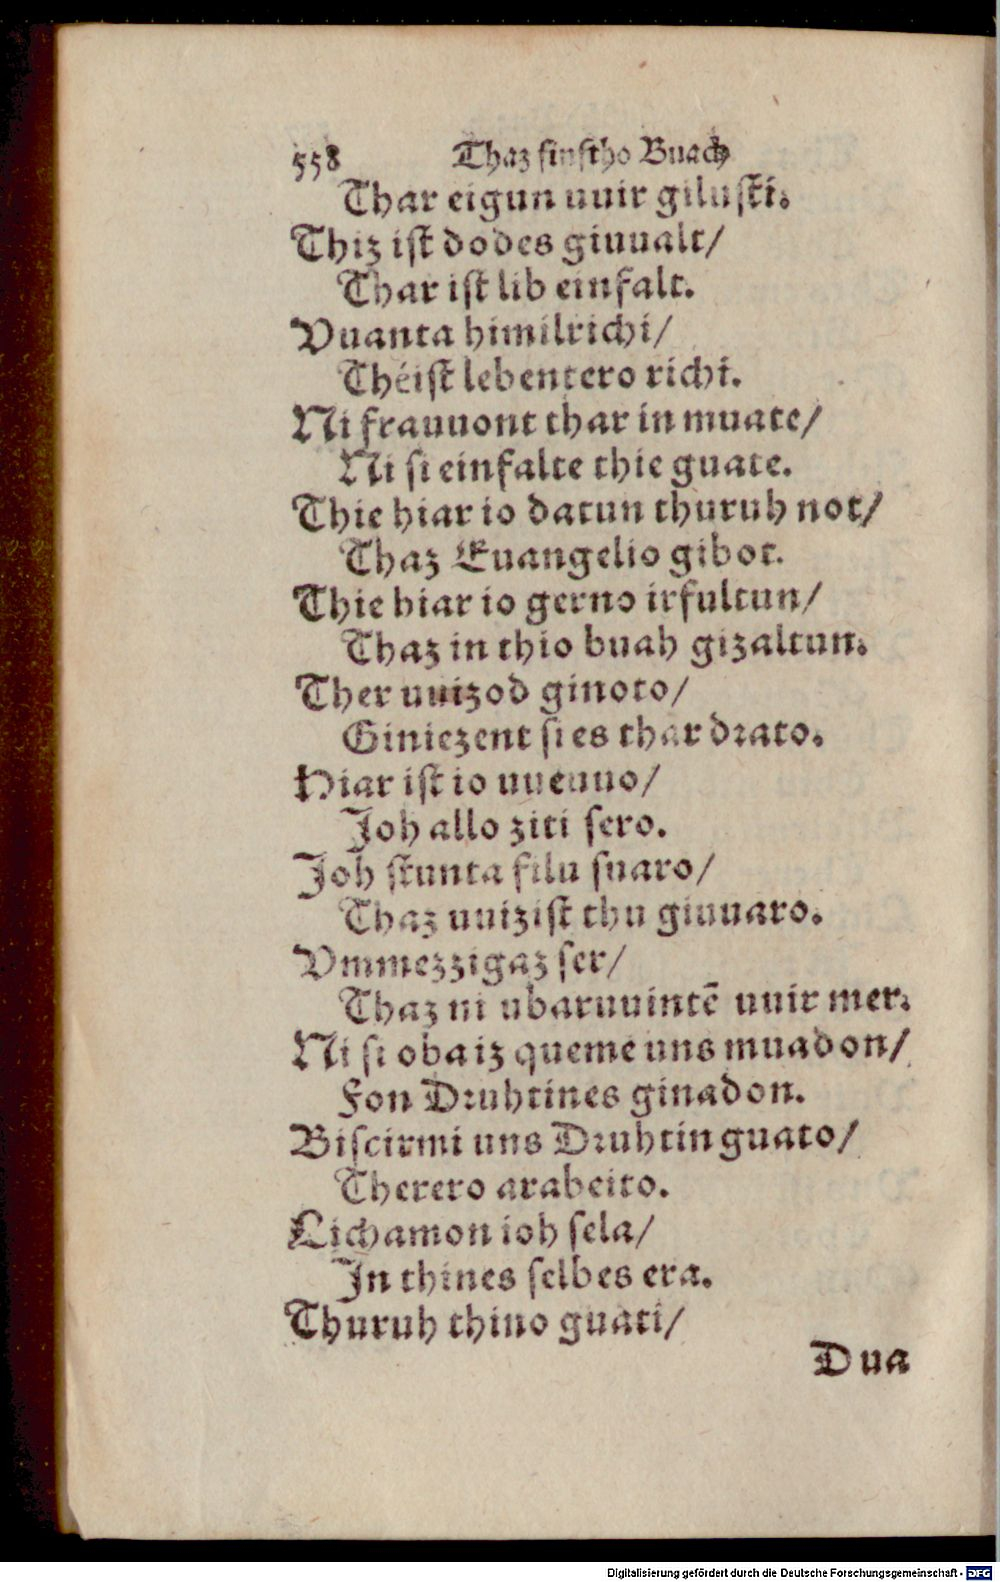 558 Thaz finftho Buach
Thar eigun uuir gilusti.
Thiz ist dodes giuualt/
Thar ist lib einfalt.
Vuanta himilrichi/
Théist lebentero richi.
Ni frauuont thar in muate/
Ni si einfalte thie guate.
Thie hiar io datun thuruh not/
Thaz Euangelio gibot.
Thie hiar io gerno irfultun/
Thaz in thio buah gizaltun.
Ther uuizod ginoto/
Giniezent si es thar drato.
Hiar ist io uueuuo/
Joh allo ziti sero.
Joh stunta filu suaro/
Thaz uuizist thu giuuaro.
Vmmezzigaz ser/
Thaz ni ubaruuintē uuir mer.
Ni si oba iz queme uns muadon/
Fon Druhtines ginadon.
Biscirmi uns Druhtin guato/
Therero arabeito.
Lichamon ioh sela/
In thines selbes era.
Thuruh thino guati/
Dua
Digitalisierung gefördert durch die Deutsche Forschungsgemeinschaft - DFG